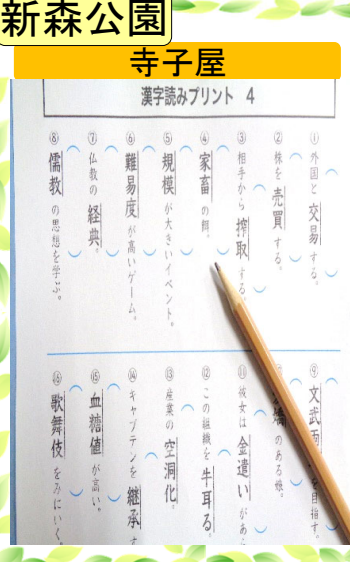 新森公園
寺子屋
漢字読みプリント 4
① 外国と交易する。
② 株を売買する。
③ 相手から搾取する。
④ 家畜の餌。
⑤ 規模が大きいイベント。
⑥ 難易度が高いゲーム。
⑦ 仏教の経典。
⑧ 儒教の思想を学ぶ。
⑨ 文武 を目指す。
のある娘。
⑪ 彼女は金遣いがあら
⑫ この組織を牛耳る。
⑬ 産業の空洞化。
⑭ キャプテンを継承す
⑮ 血糖値が高い。
⑯ 歌舞伎をみにいく。